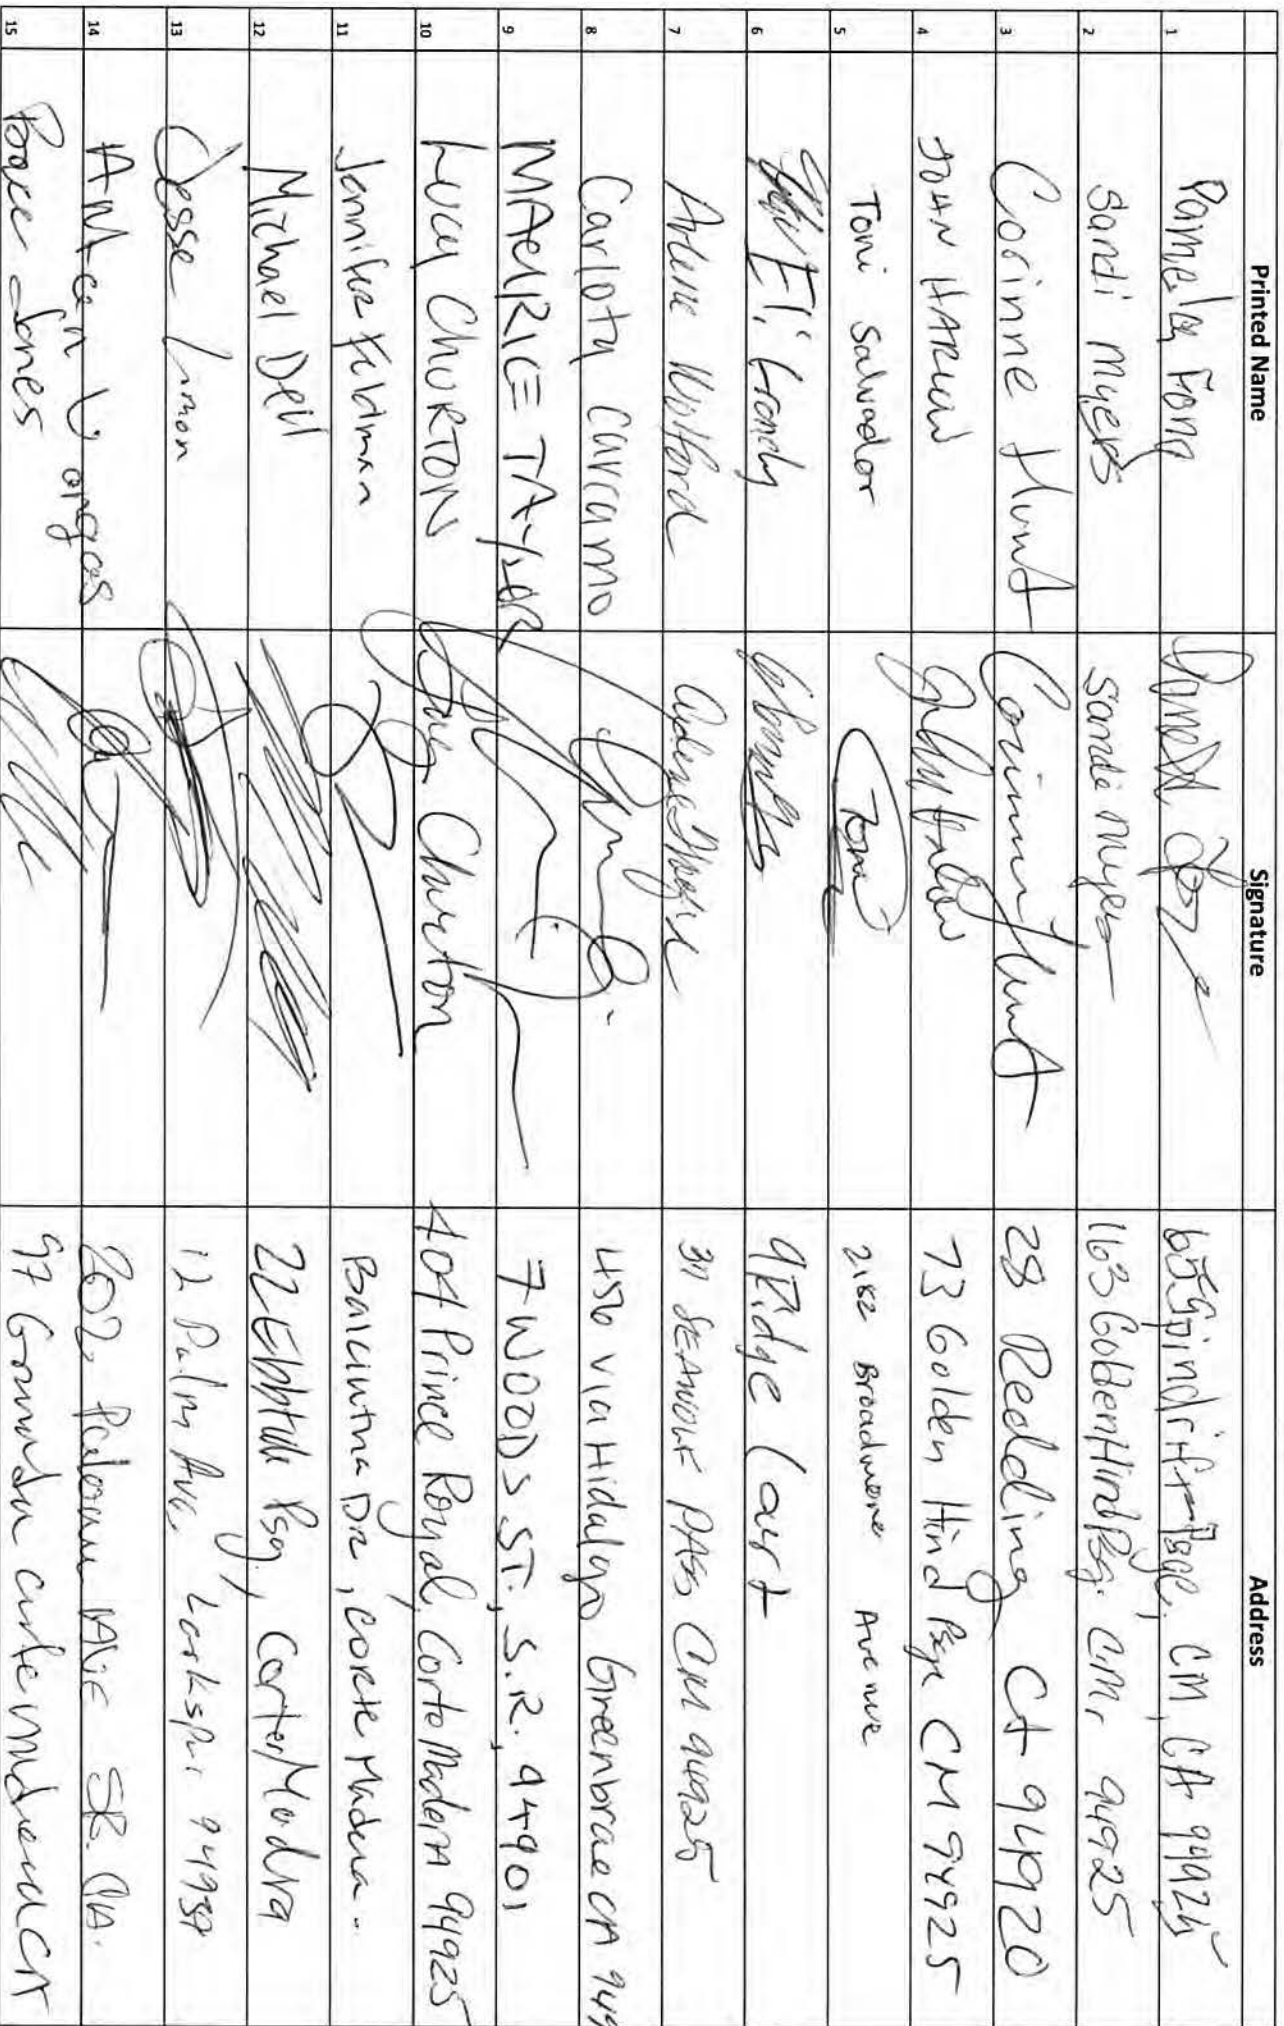 Printed Name Signature Address
1 Pamela Fong 65 Spindrift Psge, CM, CA 94925
2 Sandi Myers Sandi Myers 163 Golden Hind Psg. C.M, 94925
3 Corinne Hunt Corinne Hunt 28 Redding CA 94920
4 JOHN HARLOW John Harlow 73 Golden Hind Psge CM 94925
5 Toni Salvador Toni 2182 Broadmoor Avenue
6 Eli 9 Ridge Court
7 Arlene 311 SEAWOLF PASS CM 94925
8 Carlota Carcamo 456 Via Hidalgo Greenbrae CA 949
9 MAURICE TAYLOR 7 WOODS ST., S.R., 94901
10 LUCY CHURTON Lucy Churton 404 Prince Royal, Corte Madera 94925
11 Jennifer Feldman Balclutha Dr, Corte Madera..
12 Michael Deil 22 Ebbtide Psg, Corte Madera
13 Jesse Limon 12 Palm Ave, Larkspur 94939
14 202 SR. CA.
15 Jones 97 CA